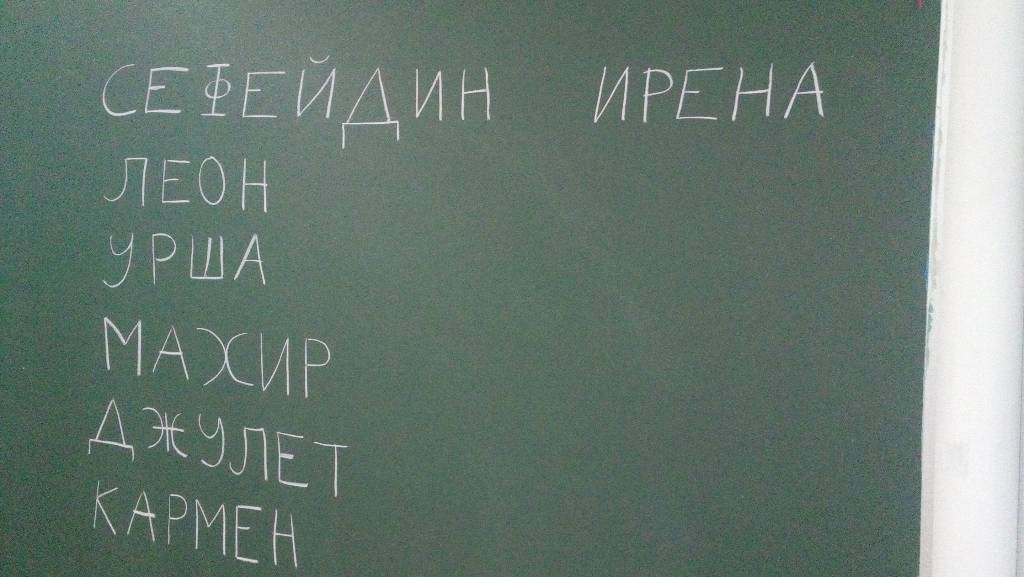 СЕФЕЙДИН ИРЕНА
ЛЕОН
УРША
МАХИР
ДЖУЛЕТ
КАРМЕН